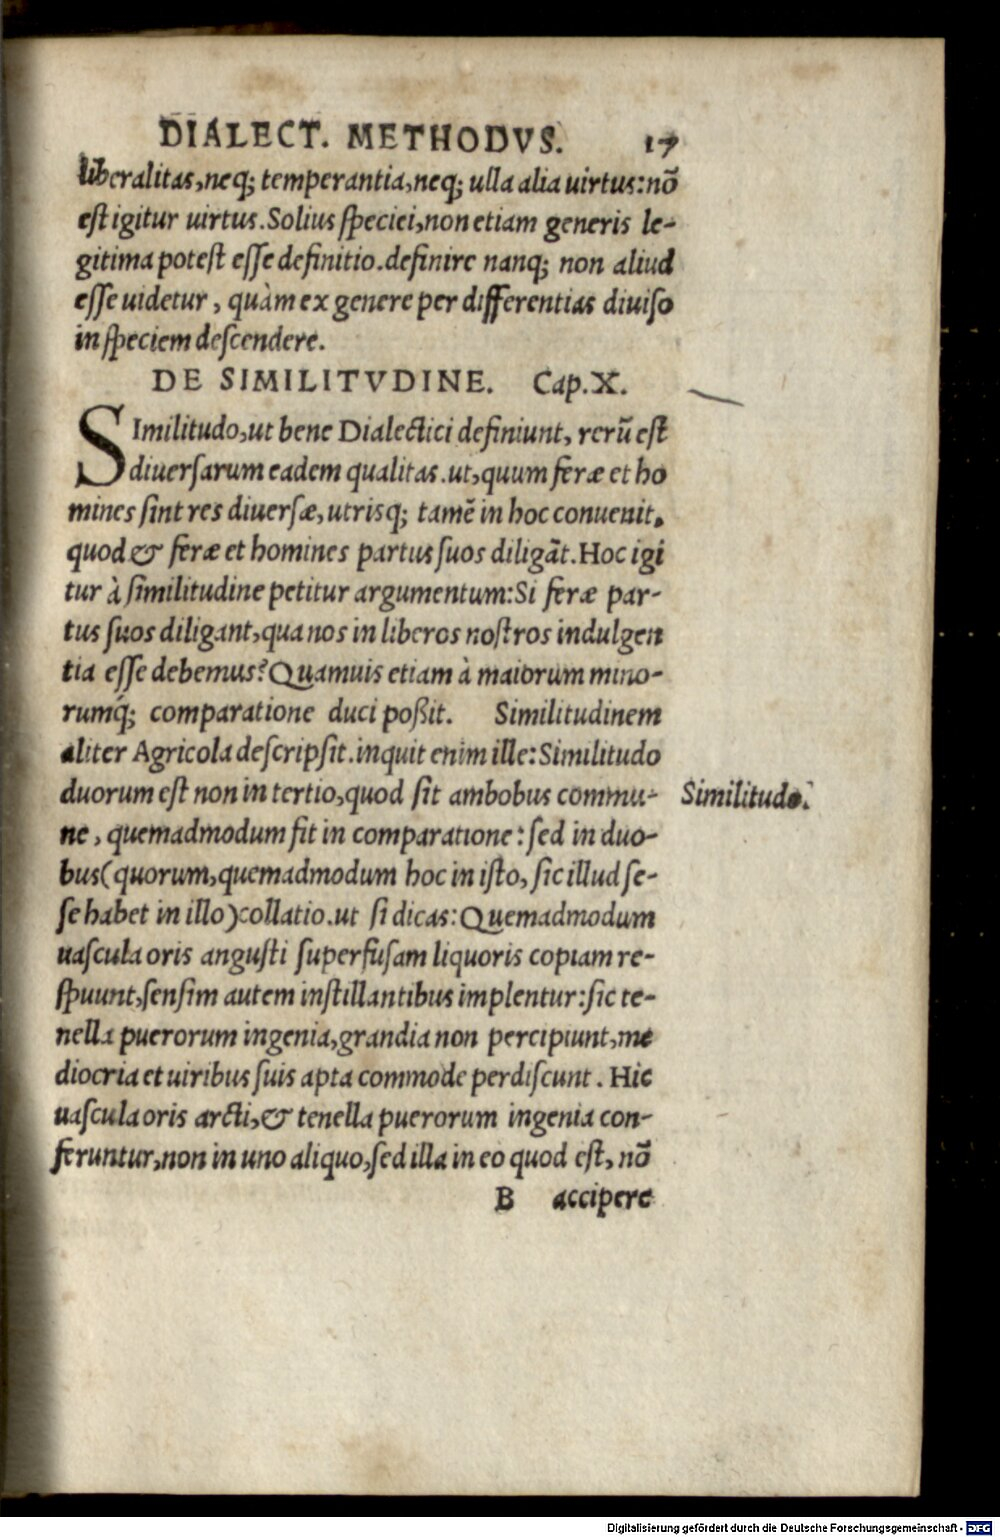 DIALECT. METHODVS. 17
liberalitas, neq; temperantia, neq; ulla alia uirtus: nõ
est igitur uirtus. Solius speciei, non etiam generis le-
gitima potest esse definitio. definire nanq; non aliud
esse uidetur, quàm ex genere per differentias diuiso
in speciem descendere.
DE SIMILITVDINE. Cap. X.
SImilitudo, ut bene Dialectici definiunt, rerũ est
diuersarum eadem qualitas. ut, quum feræ et ho
mines sint res diuersæ, utrisq; tamẽ in hoc conuenit,
quod & feræ et homines partus suos diligãt. Hoc igi
tur à similitudine petitur argumentum: Si feræ par-
tus suos diligant, qua nos in liberos nostros indulgen
tia esse debemus? Quamuis etiam à maiorum mino-
rumq́; comparatione duci poßit. Similitudinem
aliter Agricola descripsit. inquit enim ille: Similitudo
duorum est non in tertio, quod sit ambobus commu-
Similitudo.
ne, quemadmodum fit in comparatione: sed in duo-
bus (quorum, quemadmodum hoc in isto, sic illud se-
se habet in illo) collatio. ut si dicas: Quemadmodum
uascula oris angusti superfusam liquoris copiam re-
spuunt, sensim autem instillantibus implentur: sic te-
nella puerorum ingenia, grandia non percipiunt, me
diocria et uiribus suis apta commode perdiscunt. Hic
uascula oris arcti, & tenella puerorum ingenia con-
feruntur, non in uno aliquo, sed illa in eo quod est, nõ
B accipere
Digitalisierung gefördert durch die Deutsche Forschungsgemeinschaft - DFG